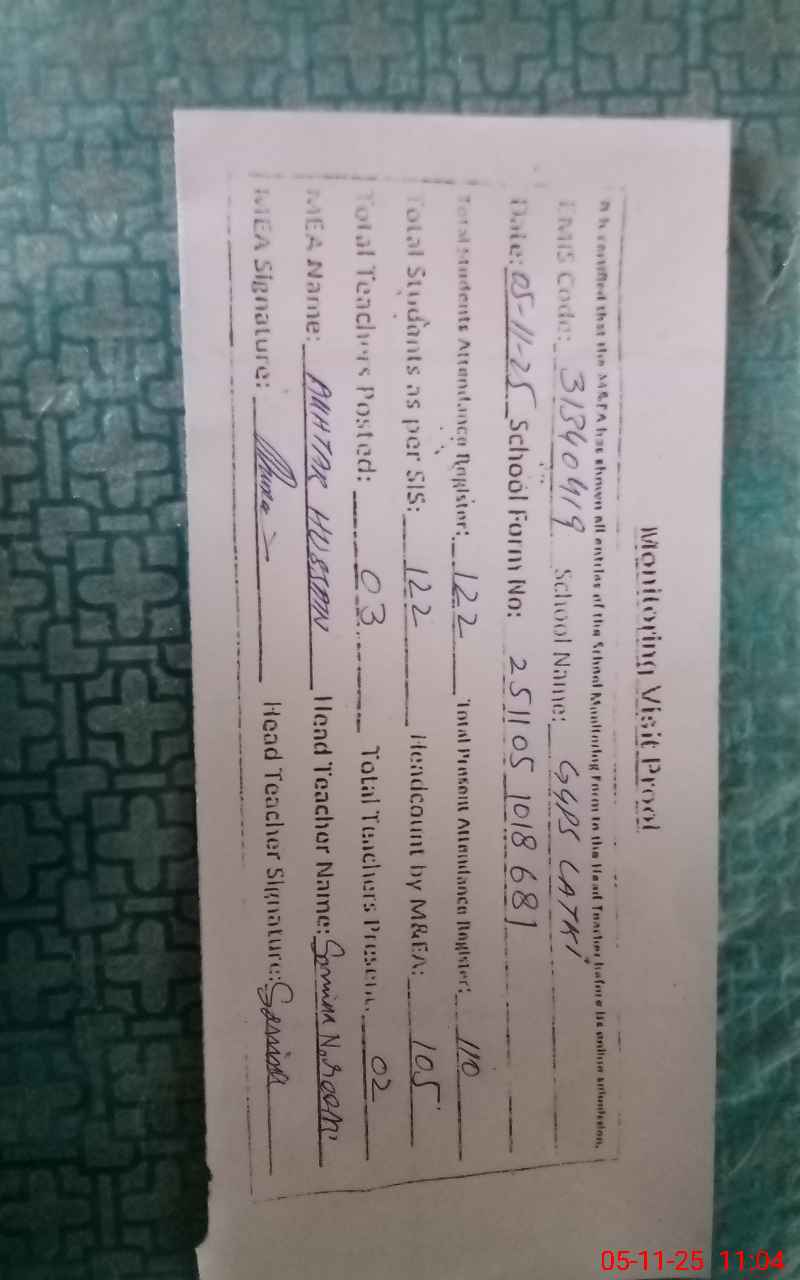 Monitoring Visit Proof
It is certified that the M&EA has shown all entries of the School Monitoring Form to the Head Teacher before its online submission.
EMIS Code: 31340419 School Name: GGPS LATKI
Date: 05-11-25 School Form No: 251105 1018 681
Total Students Attendance Register: 122 Total Present Attendance Register: 110
Total Students as per SIS: 122 Headcount by M&EA: 105
Total Teachers Posted: 03 Total Teachers Present: 02
MEA Name: AUHTAR HUSSAIN Head Teacher Name: Samina
MEA Signature: Head Teacher Signature: Samina
05-11-25 11:04